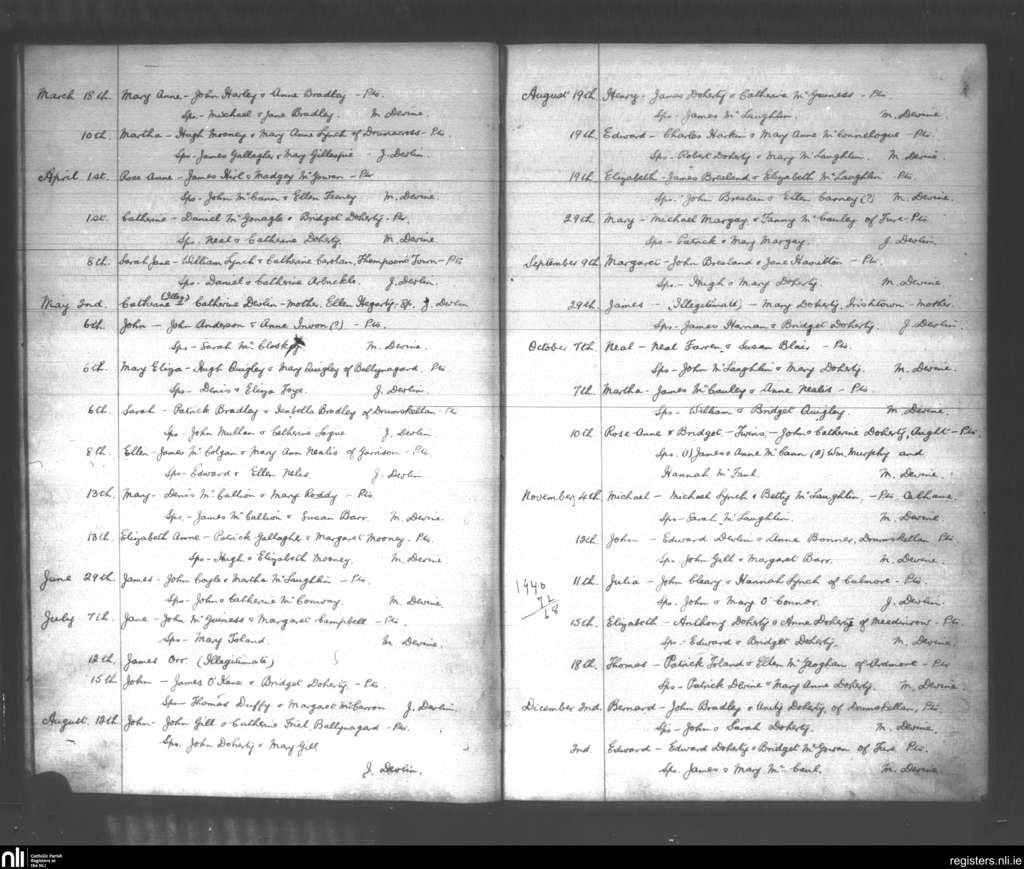 March 18th. Mary Anne - John Harley & Anne Bradley - Pts.
Sps - Michael & Jane Bradley. M. Devine.
10th. Martha - Hugh Mooney & Mary Anne Lynch of Drunacross - Pts.
Sps. James Gallagher & Mary Gillespie - J. Devlin.
April 1st. Rose Anne - James Hirl & Madgey McGowan - Pts
Sps - John McCann & Ellen Feaney M. Devine.
1st. Catherine - Daniel McGonagle & Bridget Doherty - Pts.
Sps. Neal & Catherine Doherty. M. Devine.
8th. Sarah Jane - William Lynch & Catherine Carolan, Thompson's Town - Pts
Sps. Daniel & Catherine Arbuckle. J. Devlin.
May 2nd. Catherine (Illeg) Catherine Devlin - Mother. Ellen Hegarty, Sp. J. Devlin
6th. John - John Anderson & Anne Irwon (?) - Pts.
Sps - Sarah McCloskey M. Devine.
6th. Mary Eliza - Hugh Quigley & Mary Quigley of Ballynagard. Pts
Sps - Denis & Eliza Foye. J. Devlin.
6th. Sarah - Patrick Bradley & Isabella Bradley of Drumskellan - Pts
Sps. John Mullan & Catherine Logue J. Devlin
8th. Ellen - James McColgan & Mary Ann Nealis of Garrison - Pts.
Sps - Edward & Ellen Nelis J. Devlin.
13th. Mary - Denis McCallion & Mary Roddy - Pts
Sps. - James McCallion & Susan Barr. M. Devine.
13th. Elizabeth Anne - Patrick Gallagher & Margaret Mooney - Pts.
Sps - Hugh & Elizabeth Mooney. M. Devine
June 29th. James - John Coyle & Martha McLaughlin - Pts.
Sps - John & Catherine McConway. M. Devine.
July 7th. Jane - John McGuiness & Margaret Campbell - Pts.
Sps - Mary Toland. M. Devine.
12th. James Orr. (Illegitimate)
15th. John - James O'Kane & Bridget Doherty. - Pts.
Sps - Thomas Duffy & Margaret McCarron J. Devlin.
August. 12th. John - John Gill & Catherine Friel Ballynagard - Pts.
Sps. John Doherty & Mary Gill
J. Devlin.
August 19th. Henry - James Doherty & Catherine McGuiness - Pts.
Sps - James McLaughlin. M. Devine.
19th. Edward - Charles Harkin & Mary Anne McConnelogue - Pts.
Sps - Robert Doherty & Mary McLaughlin. M. Devine.
19th. Elizabeth - James Bresland & Elizabeth McLaughlin Pts.
Sps. John Breslan & Ellen Carney (?) M. Devine.
29th. Mary - Michael Margay & Fanny McCauley of Fure. Pts.
Sps - Patrick & Mary Margay. J. Devlin.
September 9th. Margaret - John Bresland & Jane Hamilton - Pts.
Sps - Hugh & Mary Doherty. M. Devine
29th. James - (Illegitimate) - Mary Doherty, Irishtown - Mother.
Sps - James Harnan & Bridget Doherty. J. Devlin.
October 7th. Neal - Neal Farren & Susan Blair - Pts.
Sps - John McLaughlin & Mary Doherty. M. Devine.
7th. Martha - James McCauley & Anne Nealis - Pts.
Sps - William & Bridget Quigley. M. Devine.
10th. Rose Anne & Bridget - Twins - John & Catherine Doherty, Aught - Pts.
Sps. (1) James & Anne McCann (2) Wm. Murphy and
Hannah McFaul. M. Devine.
November 4th. Michael - Michael Lynch & Betty McLaughlin, - Pts. Culhane.
Sps - Sarah McLaughlin. M. Devine
12th. John - Edward Devlin & Anne Bonner, Drumskellan Pts.
Sps. John Gill & Margaret Barr. M. Devine.
11th. Julia - John Cleary & Hannah Lynch of Culmore - Pts.
1940
72
68
Sps. John & Mary O'Connor. J. Devlin.
15th. Elizabeth - Anthony Doherty & Anne Doherty of Meedinrow - Pts
Sps - Edward & Bridget Doherty. M. Devine.
18th. Thomas - Patrick Toland & Ellen McGeoghan of Ardmore - Pts
Sps - Patrick Devine & Mary Anne Doherty. M. Devine.
December 2nd. Bernard - John Bradley & Anely Doherty, of Drumskellan, Pts,
Sps - John & Sarah Doherty. M. Devine.
2nd. Edward - Edward Doherty & Bridget McGowan of Fure Pts.
Sps. James & Mary McCaul. M. Devine.
nli Catholic Parish
Registers at
the NLI
registers.nli.ie